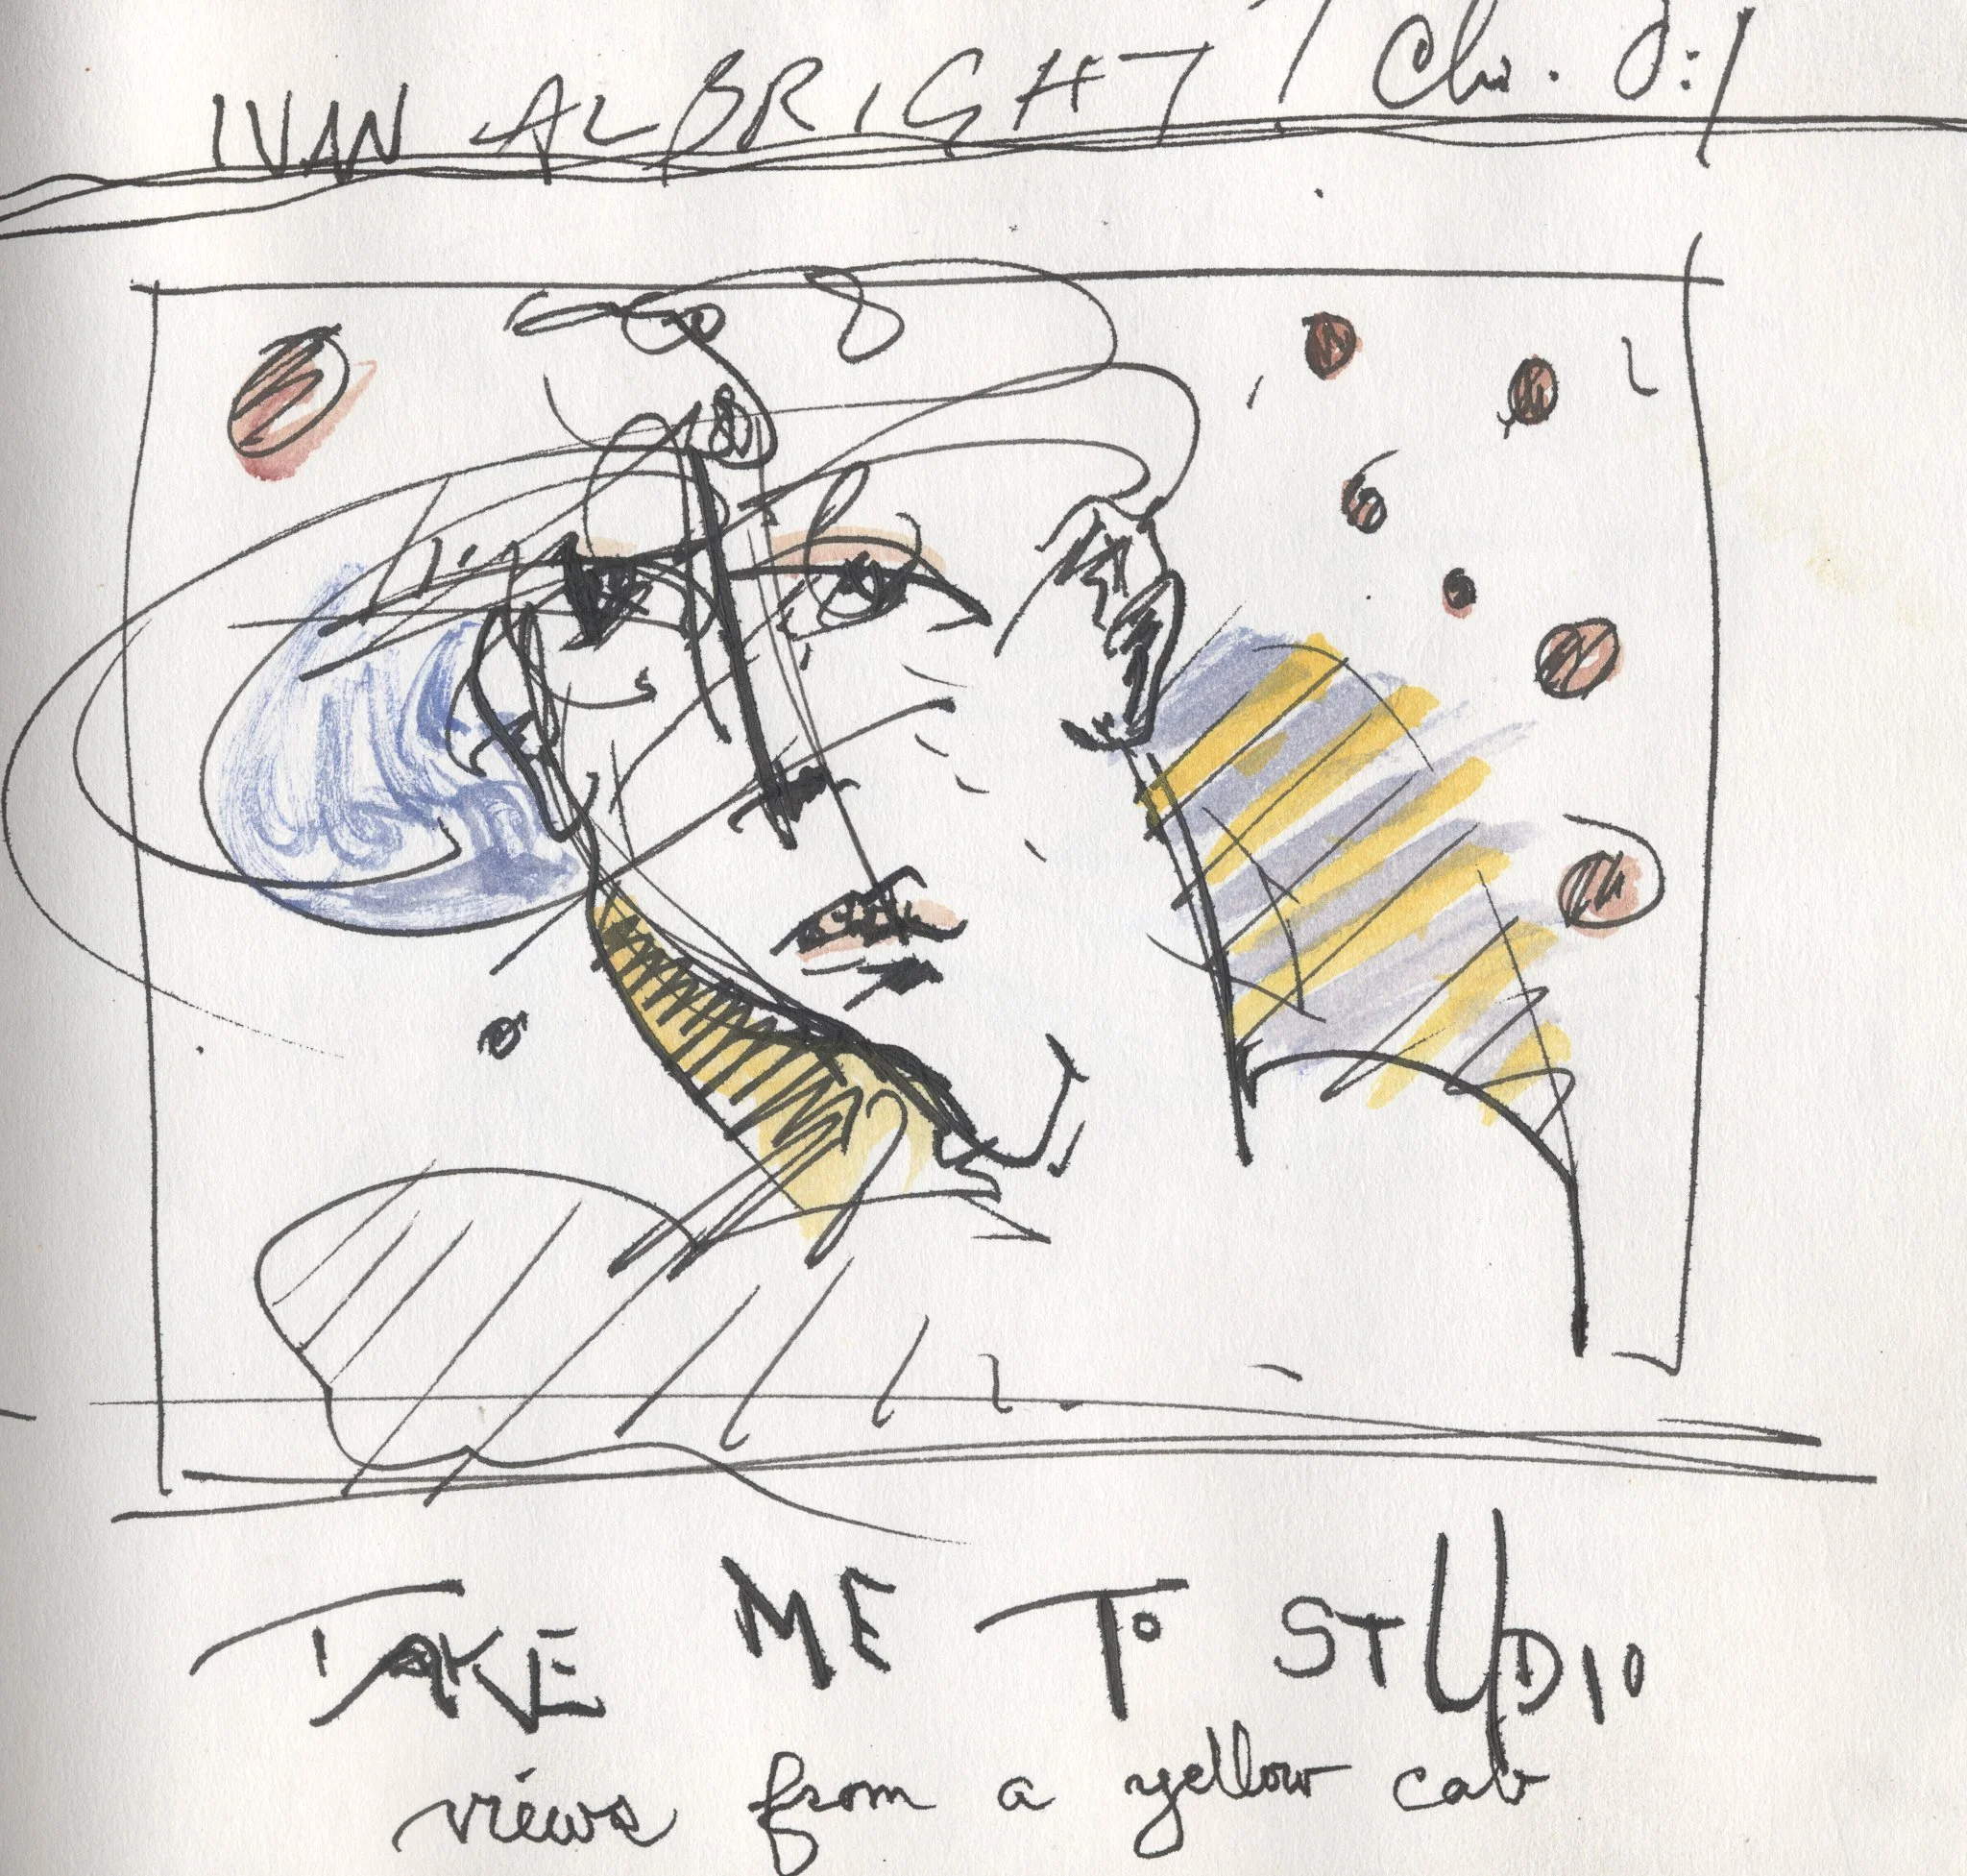 IVAN ALBRIGHT / Chi.
TAKE ME TO STUDIO
views from a yellow cab